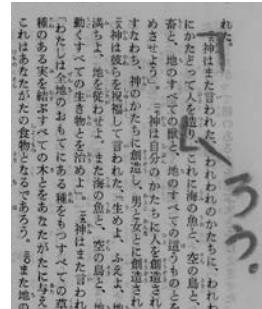 れた。
神はまた言われた、「われわれのかたちに、われわ
にかたどって人を造り、これに海の魚と、空の鳥と、
畜と、地のすべての獣と、地のすべての這うものとを
めさせよう」。神は自分のかたちに人を創造され
すなわち、神のかたちに創造し、男と女とに創造され
神は彼らを祝福して言われた、「生めよ、ふえよ、地
満ちよ、地を従わせよ。また海の魚と、空の鳥と、地
動くすべての生き物とを治めよ」。神はまた言われ
「わたしは全地のおもてにある種をもつすべての草
種のある実を結ぶすべての木とをあなたがたに与え
これはあなたがたの食物となるであろう。また地の
ろう。